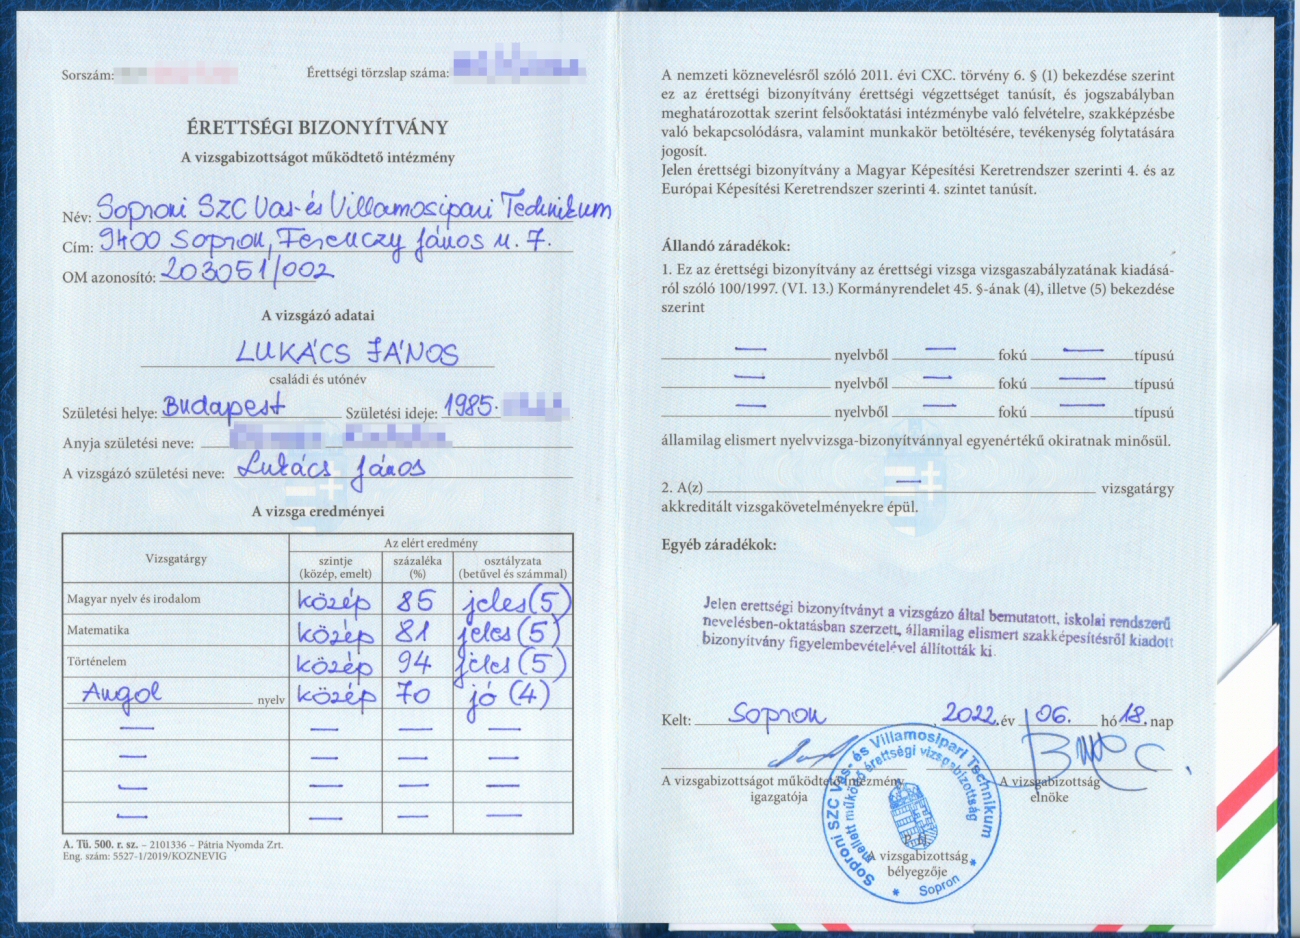 Sorszám:
Érettségi törzslap száma:
ÉRETTSÉGI BIZONYÍTVÁNY
A vizsgabizottságot működtető intézmény
Név: Soproni SZC Vas- és Villamosipari Technikum
Cím: 9400 Sopron, Ferenczy János u. 7.
OM azonosító: 203051/002
A vizsgázó adatai
LUKÁCS JÁNOS
családi és utónév
Születési helye: Budapest Születési ideje: 1985.
Anyja születési neve:
A vizsgázó születési neve: Lukács János
A vizsga eredményei
Vizsgatárgy
Az elért eredmény
szintje százaléka osztályzata
(közép, emelt) (%) (betűvel és számmal)
Magyar nyelv és irodalom közép 85 jeles (5)
Matematika közép 81 jeles (5)
Történelem közép 94 jeles (5)
Angol nyelv közép 70 jó (4)
— — — —
— — — —
— — — —
— — — —
A. Tü. 500. r. sz. – 2101336 – Pátria Nyomda Zrt.
Eng. szám: 5527-1/2019/KOZNEVIG
A nemzeti köznevelésről szóló 2011. évi CXC. törvény 6. § (1) bekezdése szerint
ez az érettségi bizonyítvány érettségi végzettséget tanúsít, és jogszabályban
meghatározottak szerint felsőoktatási intézménybe való felvételre, szakképzésbe
való bekapcsolódásra, valamint munkakör betöltésére, tevékenység folytatására
jogosít.
Jelen érettségi bizonyítvány a Magyar Képesítési Keretrendszer szerinti 4. és az
Európai Képesítési Keretrendszer szerinti 4. szintet tanúsít.
Állandó záradékok:
1. Ez az érettségi bizonyítvány az érettségi vizsga vizsgaszabályzatának kiadásá-
ról szóló 100/1997. (VI. 13.) Kormányrendelet 45. §-ának (4), illetve (5) bekezdése
szerint
— nyelvből — fokú — típusú
— nyelvből — fokú — típusú
— nyelvből — fokú — típusú
államilag elismert nyelvvizsga-bizonyítvánnyal egyenértékű okiratnak minősül.
2. A(z) — vizsgatárgy
akkreditált vizsgakövetelményekre épül.
Egyéb záradékok:
Jelen érettségi bizonyítványt a vizsgázó által bemutatott, iskolai rendszerű
nevelésben-oktatásban szerzett, államilag elismert szakképesítésről kiadott
bizonyítvány figyelembevételével állították ki.
Kelt: Sopron, 2022. év 06. hó 18. nap
A vizsgabizottságot működtető intézmény
igazgatója
A vizsgabizottság
elnöke
Soproni SZC Vas- és Villamosipari Technikum
mellett működő érettségi vizsgabizottság
* Sopron *
P. H.
A vizsgabizottság
bélyegzője